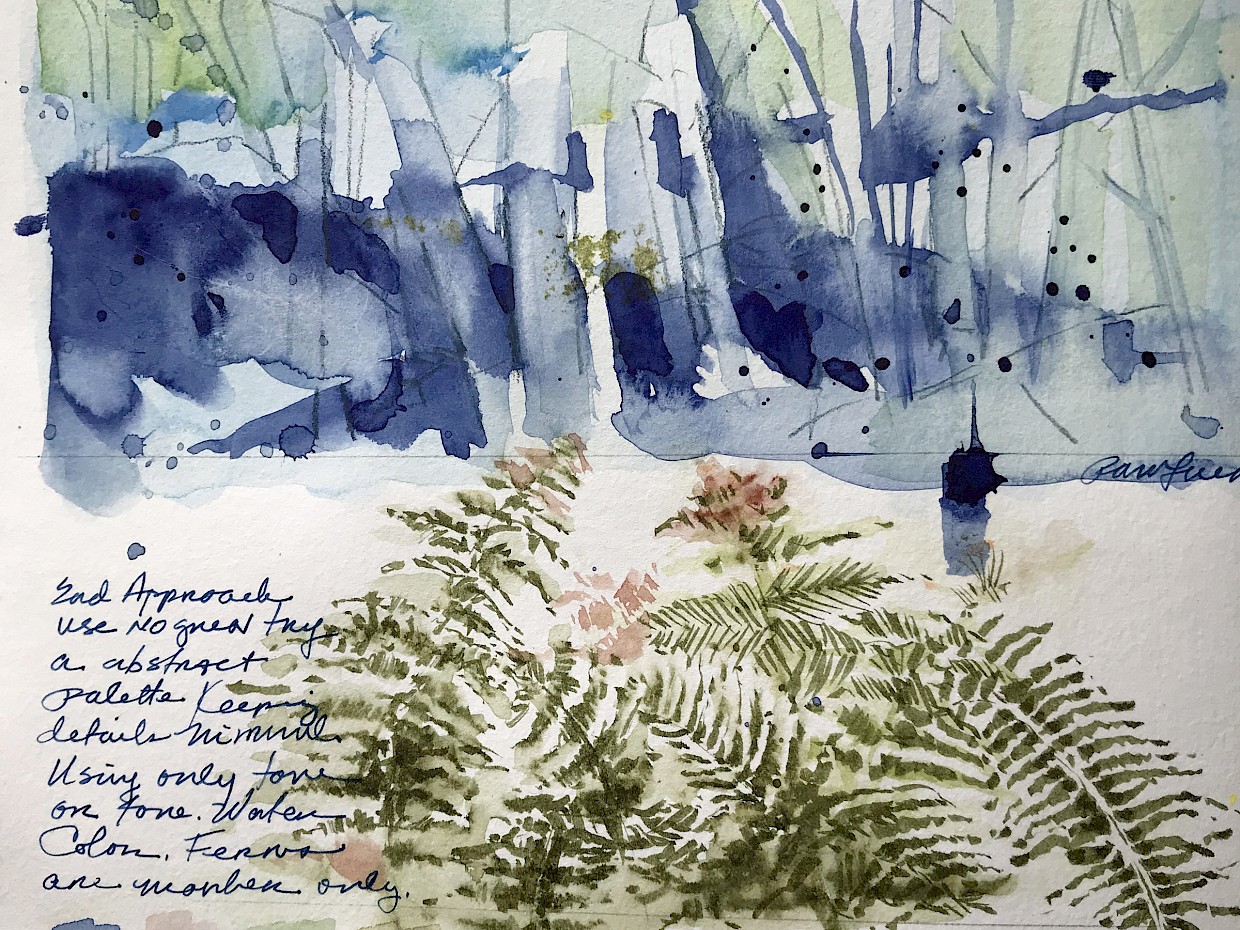 2nd Approach
use no green try
a abstract
palette Keeping
details minimal
Using only tone
on tone. Water
Color. Ferns
are marker only.